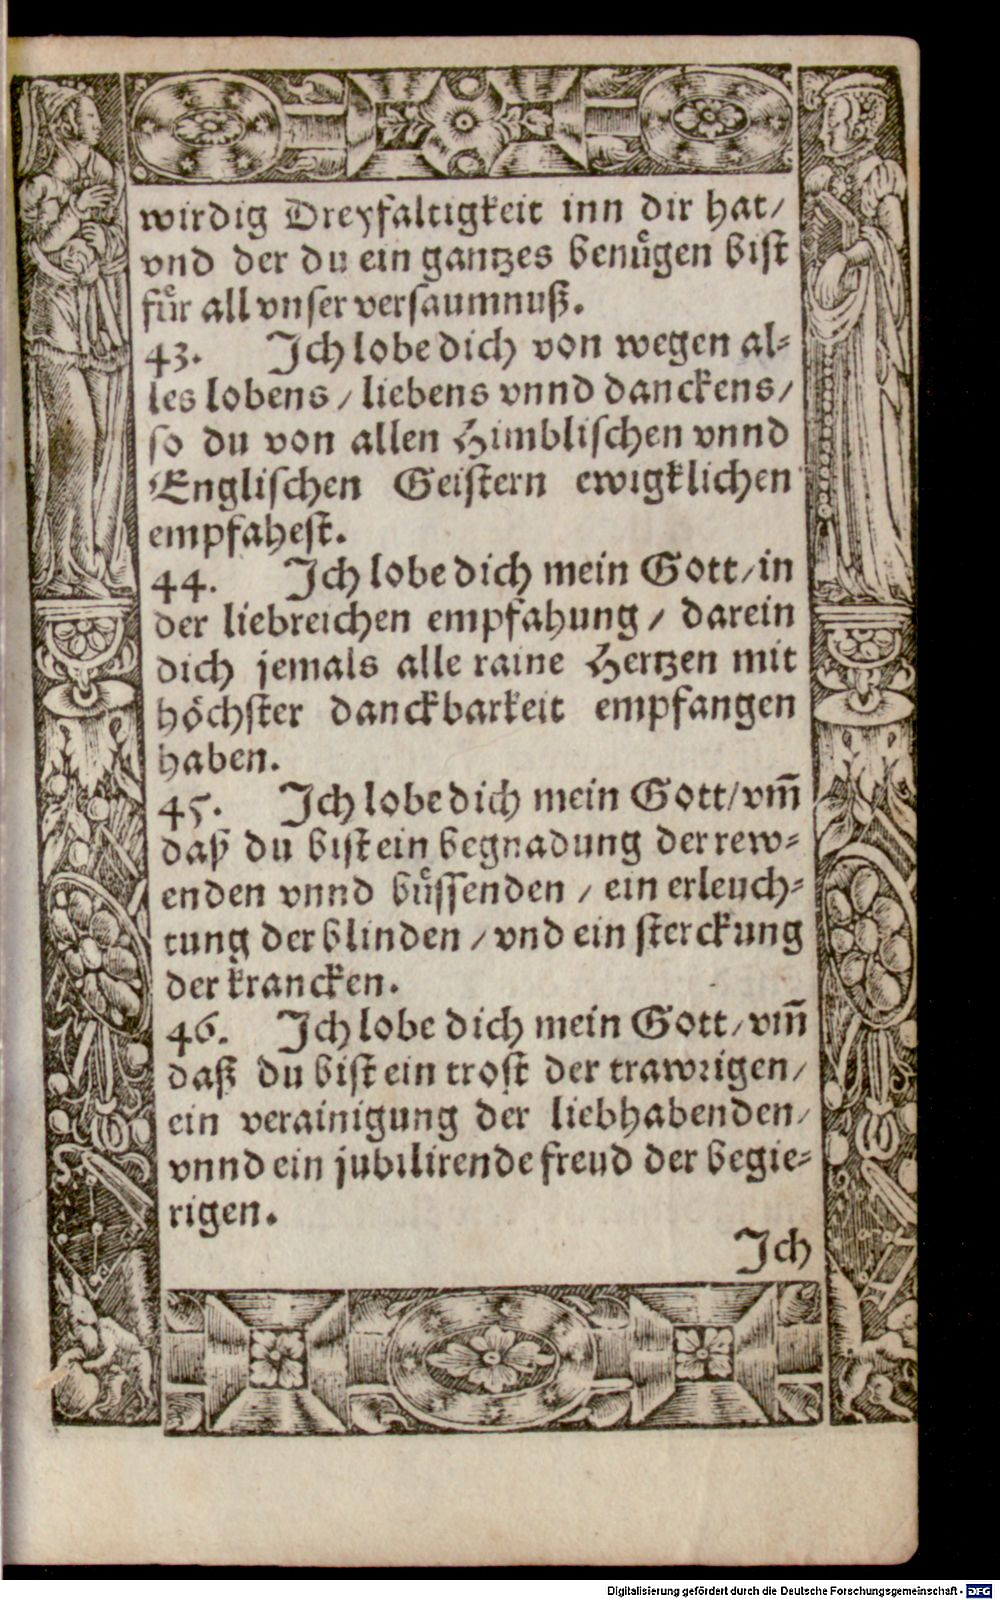 wirdig Dreyfaltigkeit inn dir hat/
vnd der du ein gantzes benuͤgen bist
fuͤr all vnser versaumnuß.
43. Ich lobe dich von wegen al-
les lobens / liebens vnnd danckens/
so du von allen Himblischen vnnd
Englischen Geistern ewigklichen
empfahest.
44. Ich lobe dich mein Gott/in
der liebreichen empfahung / darein
dich jemals alle raine Hertzen mit
hoͤchster danckbarkeit empfangen
haben.
45. Ich lobe dich mein Gott/vm̃
daß du bist ein begnadung der rew-
enden vnnd buͤssenden / ein erleuch-
tung der blinden / vnd ein sterckung
der krancken.
46. Ich lobe dich mein Gott/vm̃
daß du bist ein trost der trawrigen/
ein verainigung der liebhabenden/
vnnd ein jubilirende freud der begie-
rigen.
Ich
Digitalisierung gefördert durch die Deutsche Forschungsgemeinschaft - DFG